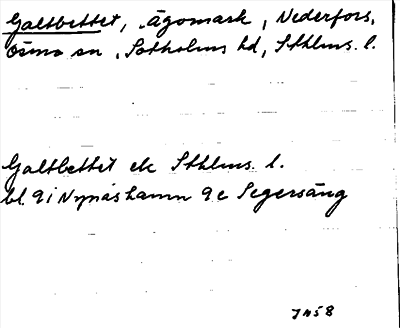 Galtbettet, ägomark, Nederfors,
Ösmo sn, Sotholms hd, Sthlms. l.
Galtbettet ek Sthlms. l.
bl. 9 i Nynäshamn 9 c Segersäng